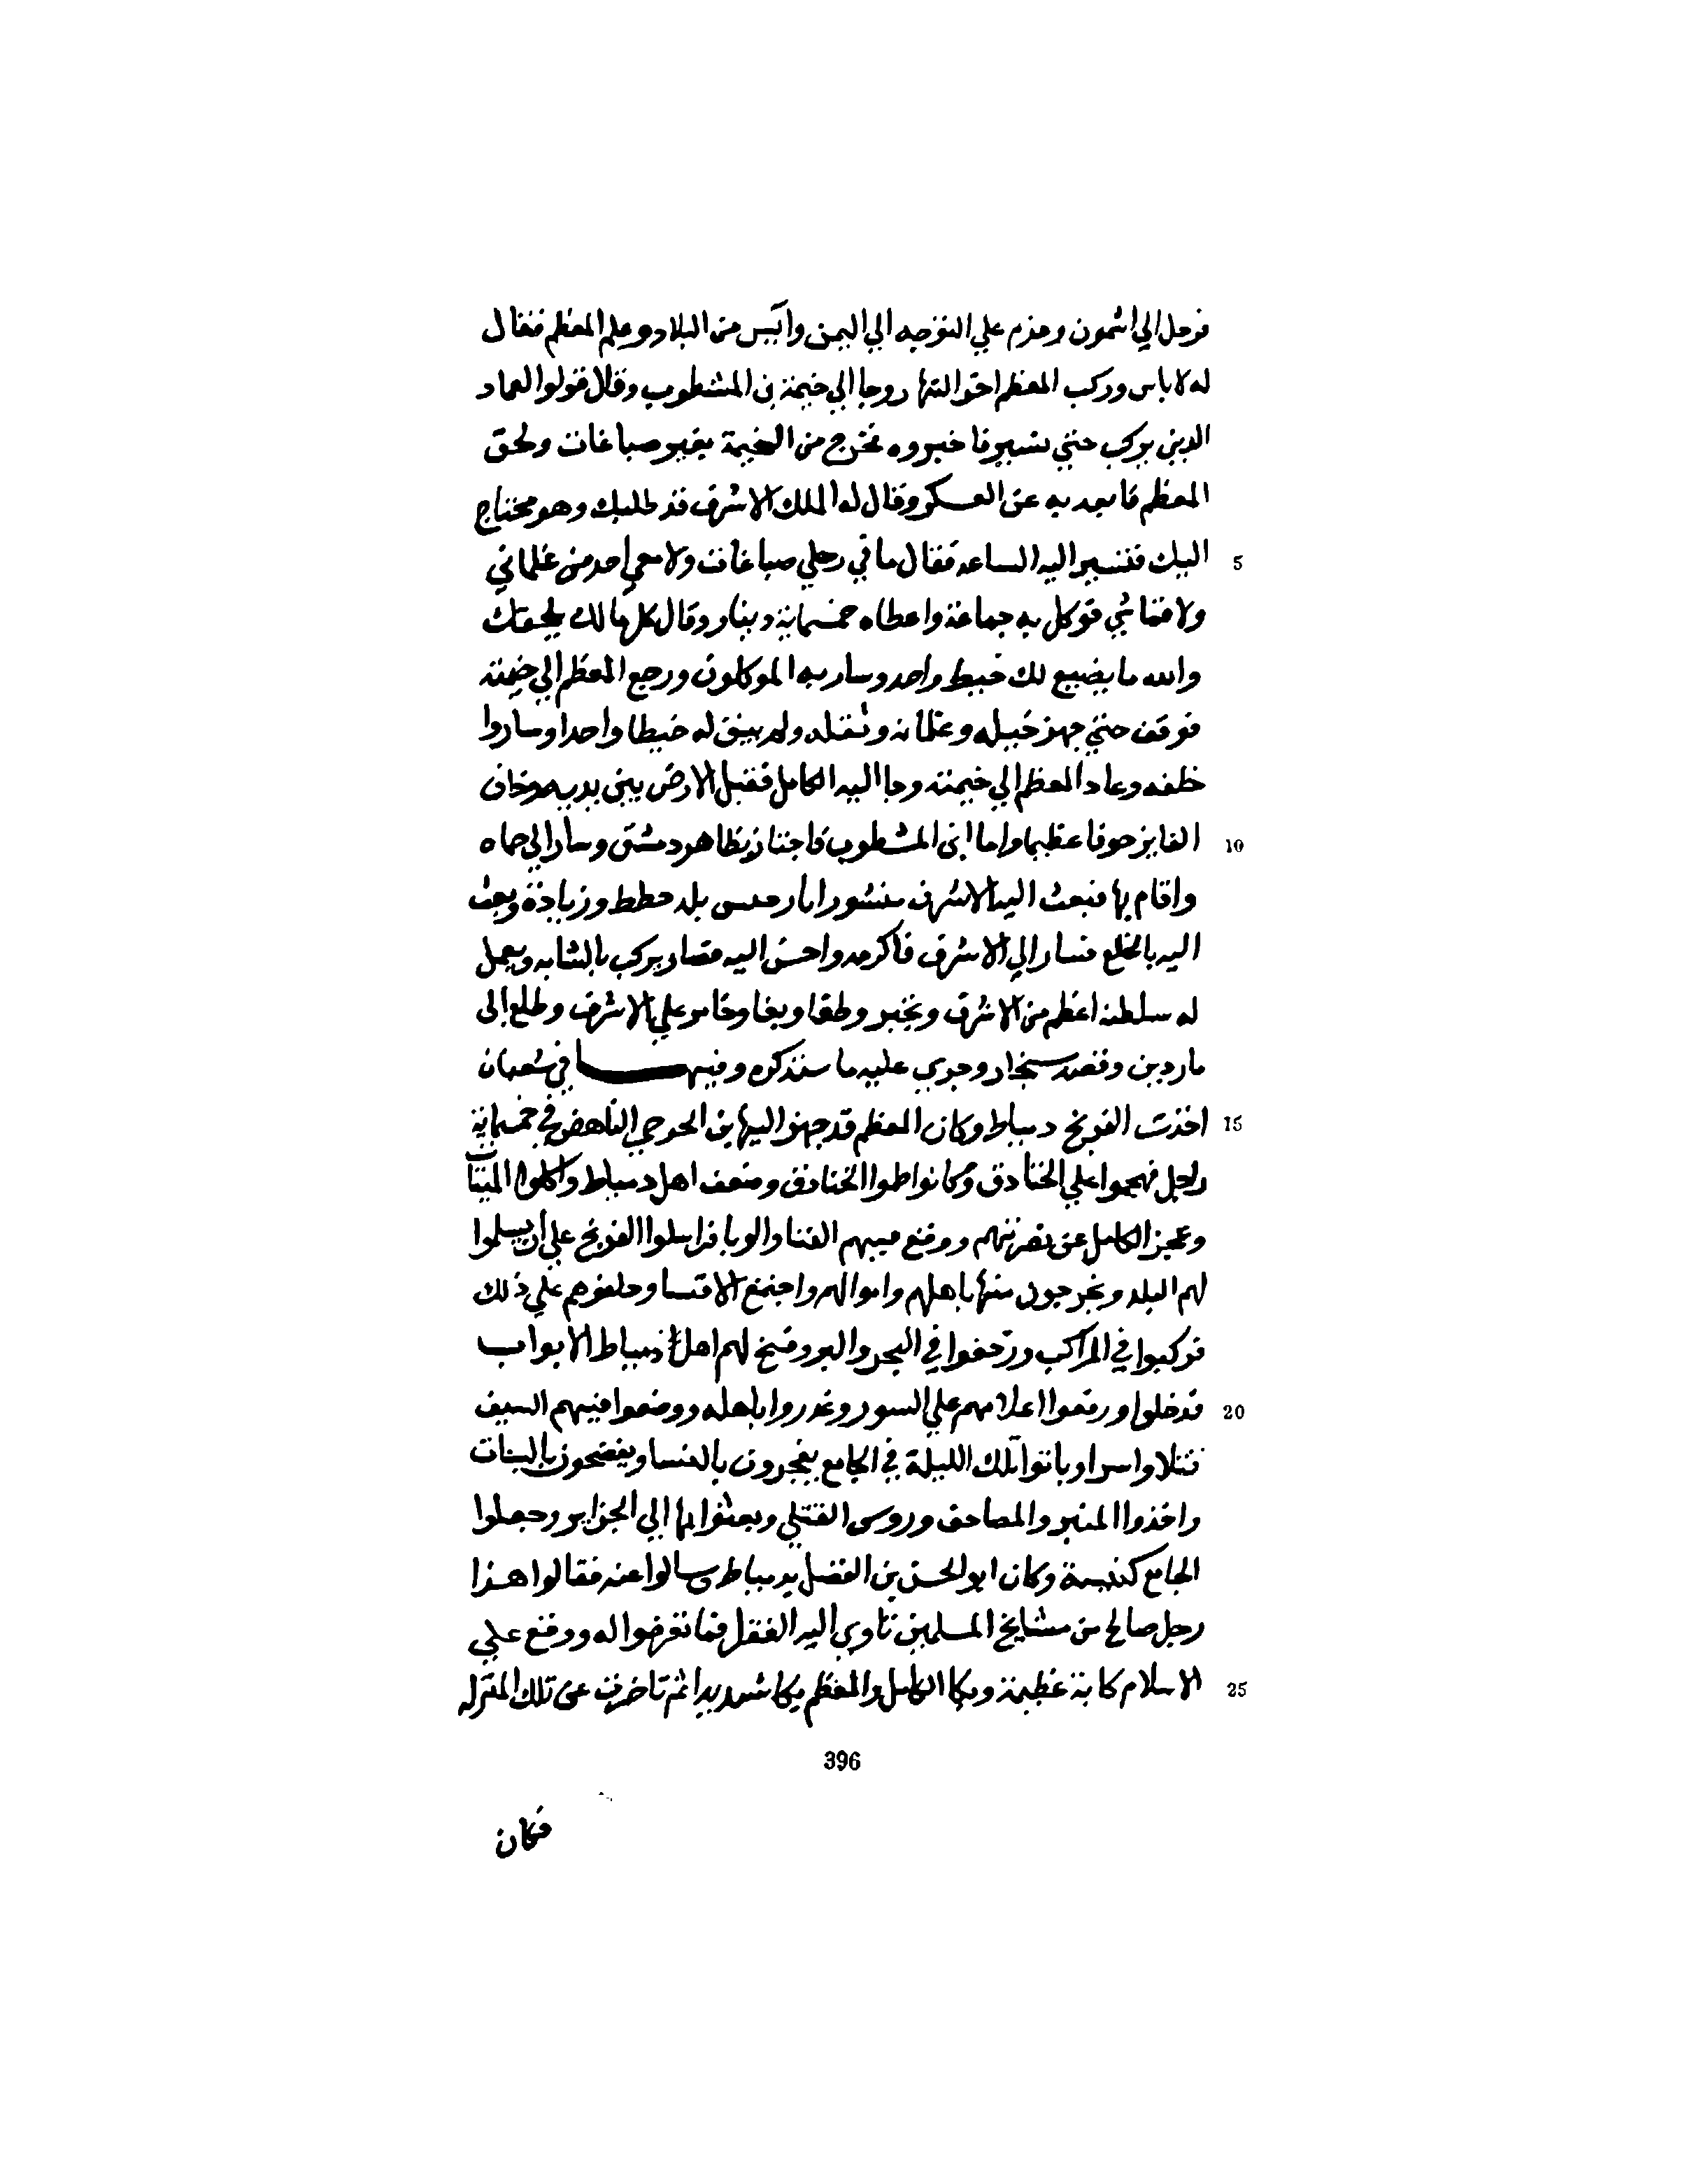 فرحل الي اشمون وعزم علي التوجه الي اليمن وايس من البلاد وعلم المعظم فقال
له لا باس وركب المعظم اخر النهار وجا الي خيمة بن المشطوب وقال قولوا لعماد
الدين يركب حتي نسير فاخبروه فخرج من الخيمة بغير صباغات ولحق
المعظم فابعد به عن العسكر وقال له الملك الاشرف قد طلبك وهو محتاج
5 اليك فتسير اليه الساعه فقال ما في رحلي صباغات ولا معي احد من غلماني
ولا قماشي فوكل به جماعة واعطاه خمسماية دينار وقال كل مالك يلحقك
والله ما يضيع لك خيط واحد وسار به الموكلون ورجع المعظم الي خيمته
فوقف حتي جهز خيله وغلمانه وثقله ولم يبق له خيطا واحدا وساروا
خلفه وعاد المعظم الي خيمته وجا اليه الكامل فقبل الارض بين يديه وخاف
10 الفايز خوفا عظيما واما ابن المشطوب فاجتاز بظاهر دمشق وسار الي حماه
واقام بها فبعث اليه الاشرف منشورا بارجيس بلد خطط وزيادة وبعث
اليه بالخلع فسار الي الاشرف فاكرمه واحسن اليه فصار يركب بالشابه ويعمل
له سلطنه اعظم من الاشرف وتجبر وطغا وبغا وخامر علي الاشرف وطلع الي
ماردين وقصد سنجار وجري عليه ما سنذكره وفيها في شعبان
15 اخذت الفرنج دمياط وكان المعظم قد جهز اليها بن الجرخي الناهض في خمسماية
راجل فهجموا علي الخنادق وكانوا طموا الخنادق وضعف اهل دمياط واكلوا الميتات
وعجز الكامل عن نصرتهم ووقع فيهم الفنا والوبا فراسلوا الفرنج علي ان يسلموا
لهم البلد ويخرجون منها باهلهم واموالهم واجتمع الاقسا وحلفوهم علي ذلك
فركبوا في المراكب وزحفوا في البحر والبر وفتح لهم اهل دمياط الابواب
20 فدخلوا ورفعوا اعلامهم علي السور وغدروا باهله ووضعوا فيهم السيف
قتلا واسرا وباتوا تلك الليلة في الجامع يفجرون بالنسا ويفضحون بالبنات
واخذوا المنبر والمصاحف وروس القتلي وبعثوا بها الي الجزاير وجعلوا
الجامع كنيسة وكان ابو الحسن بن الفضل بدمياط فسالوا عنه فقالوا هذا
رجل صالح من مشايخ المسلمين تاوي اليه الفقرا فما تعرضوا له ووقع علي
25 الاسلام كابة عظيمة وبكا الكامل والمعظم بكا شديدا ثم تاخرت عن تلك المنزله
396
فكان